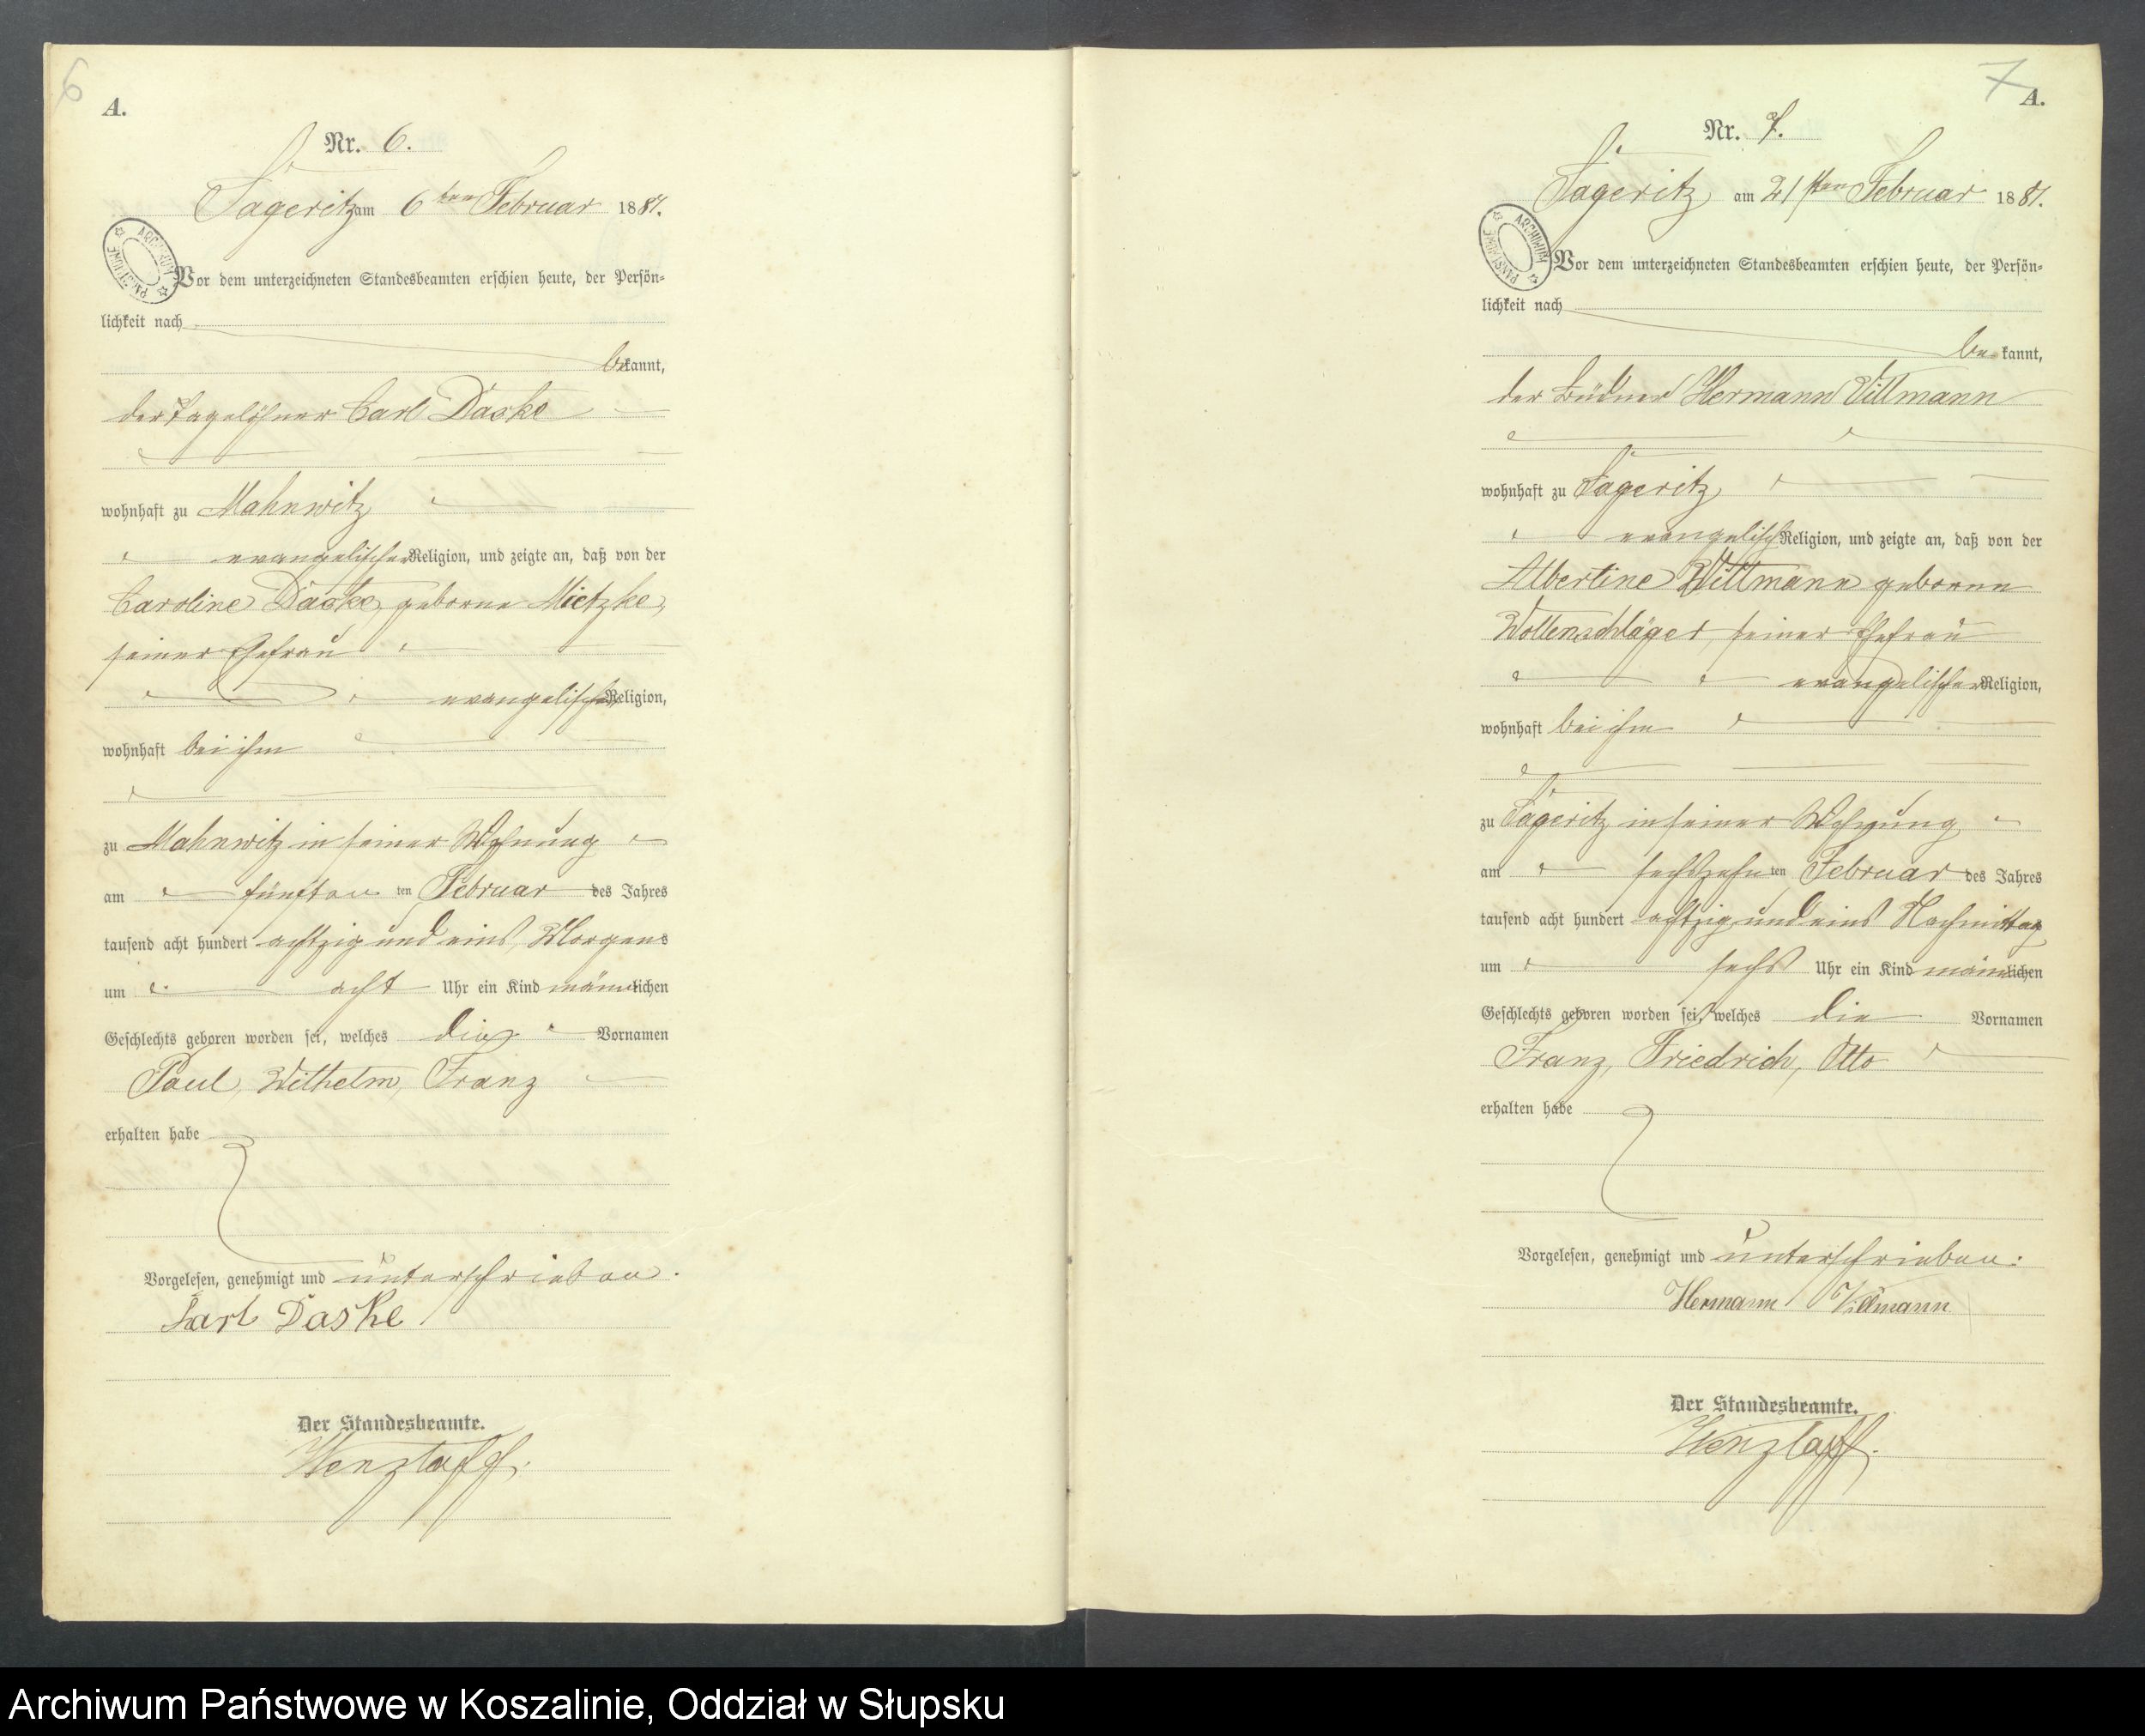 6
A.
Nr. 6.
Sageritz am 6ten Februar 1881.
ARCHIWUM PAŃSTWOWE
Vor dem unterzeichneten Standesbeamten erschien heute, der Persön-
lichkeit nach
bekannt,
der Tagelöhner Carl Daske
wohnhaft zu Mahnwitz
evangelischer Religion, und zeigte an, daß von der
Caroline Daske, geborne Mietzke,
seiner Ehefrau
evangelischer Religion,
wohnhaft bei ihm
zu Mahnwitz in seiner Wohnung
am fünften ten Februar des Jahres
tausend acht hundert achtzig und eins, Morgens
um acht Uhr ein Kind männlichen
Geschlechts geboren worden sei, welches die Vornamen
Paul, Wilhelm, Franz
erhalten habe
Vorgelesen, genehmigt und unterschrieben.
Carl Daske
Der Standesbeamte.
Wenzlaff.
7
A.
Nr. 7.
Sageritz am 21sten Februar 1881.
ARCHIWUM PAŃSTWOWE
Vor dem unterzeichneten Standesbeamten erschien heute, der Persön-
lichkeit nach
bekannt,
der Büdner Hermann Villmann
wohnhaft zu Sageritz
evangelisch Religion, und zeigte an, daß von der
Albertine Villmann geborne
Wollenschläger, seiner Ehefrau
evangelischer Religion,
wohnhaft bei ihm
zu Sageritz in seiner Wohnung
am sechszehn ten Februar des Jahres
tausend acht hundert achtzig und eins Nachmittag
um sechs Uhr ein Kind männlichen
Geschlechts geboren worden sei, welches die Vornamen
Franz, Friedrich, Otto
erhalten habe
Vorgelesen, genehmigt und unterschrieben.
Hermann Villmann
Der Standesbeamte.
Wenzlaff.
Archiwum Państwowe w Koszalinie, Oddział w Słupsku